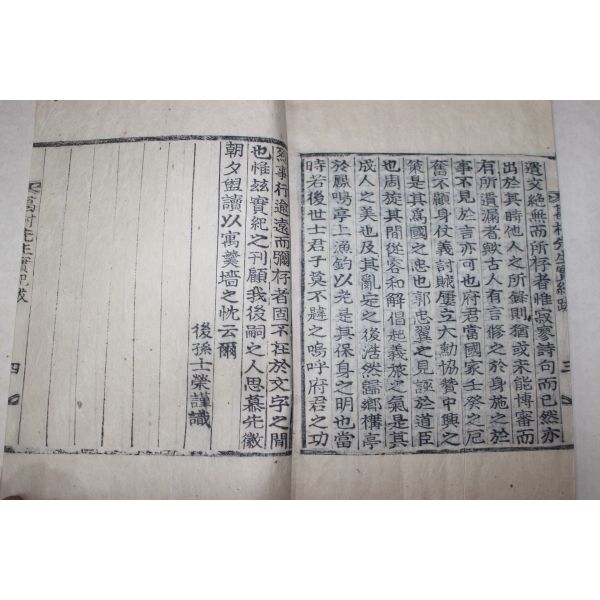 遺文絶無而所存者惟寂寥詩句而已然亦
出於其時他人之所錄則猶或未能博審而
有所遺漏者歟古人有言修之於身施之於
事不見於言亦可也府君當國家壬癸之厄
奮不顧身仗義討賊屢立大勳協贊中興之
策是其爲國之忠也郭忠翼之見誣於道臣
也周旋其間從容和解倡起義旅之氣是其
成人之美也及其亂定之後浩然歸鄕構亭
於鳳鳴亭上漁釣以光是其保身之明也當
時若後世士君子莫不韙之嗚呼府君之功
烈事行逾遠而彌存者固不在於文字之間
也惟玆實紀之刊顧我後嗣之人思慕先徽
朝夕盥讀以寓羹墻之忱云爾
後孫士榮謹識
先生實紀跋
三
先生實紀跋
四